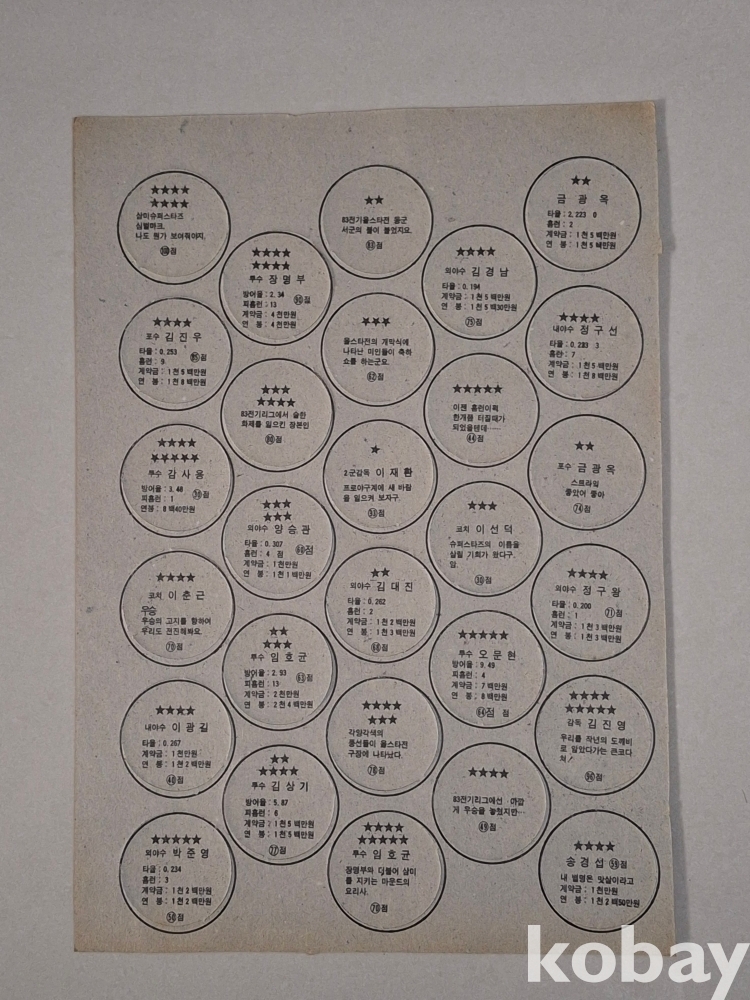 ★★★★
★★★★
삼미슈퍼스타즈
심볼마크.
나도 뭔가 보여줘야지.
점
★★★★
포수 김진우
타율: 0.253
홈런: 9.
계약금: 1천5백만원
연 봉: 1천8백만원
점
★★★★
★★★★★
투수 감사용
방어율: 3.48
피홈런: 1
연봉: 8백40만원
점
★★★★
코치 이춘근
우승
우승의 고지를 향하여
우리도 전진해봐요.
점
★★★★
내야수 이광길
타율: 0.267
계약금: 1천만원
연 봉: 1천2백만원
점
★★★★★
외야수 박준영
타율: 0.234
홈런: 3
계약금: 1천2백만원
연 봉: 1천2백만원
점
★★★★
★★★★
투수 장명부
방어율: 2.34
피홈런: 13
계약금: 4천만원
연 봉: 4천만원
점
★★★
★★★★
83전기리그에서 숱한
화제를 일으킨 장본인
점
★★★
★★★
외야수 양승관
타율: 0.307
홈런: 4 점
계약금: 1천만원
연 봉: 1천1백만원
점
★★
★★★★
투수 임호균
방어율: 2.93
피홈런: 13
계약금: 2천만원
연 봉: 2천4백만원
점
★★
★★★★
투수 김상기
방어율: 5.87
피홈런: 6
계약금: 1천5백만원
연 봉: 1천5백만원
77점
★★
83전기올스타전 동군
서군의 불이 붙었지요.
점
★★★
올스타전의 개막식에
나타난 미인들이 축하
쇼를 하는군요.
점
★
2군감독 이재환
프로야구계에 새 바람
을 일으켜 보자구.
점
★★
외야수 김대진
타율: 0.262
홈런: 2
계약금: 1천2백만원
연 봉: 1천3백만원
점
★★★★
★★★
각양각색의
풍선들이 올스타전
구장에 나타났다.
점
★★★★
★★★★★
투수 임호균
장명부와 더불어 삼미
를 지키는 마운드의
요리사.
70점
★★★★
외야수 김경남
타율: 0.194
계약금: 1천5백만원
연 봉: 1천5백30만원
점
★★★★★
이젠 홈런이꼭
한개쯤 터질때가
되었을텐데……
44점
★★★
코치 이선덕
슈퍼스타즈의 이름을
살릴 기회가 왔다구.
암.
30점
★★★★★
투수 오문현
방어율: 9.49
피홈런: 4
계약금: 7백만원
연 봉: 8백만원
64점 점
★★★★
83전기리그에선 아깝
게 우승을 놓쳤지만…
49점
★★
금광옥
타율: 2.223 0
홈런: 2
계약금: 1천5백만원
연 봉: 1천5백만원
★★★★
내야수 정구선
타율: 0.233 3
홈런: 7
계약금: 1천5백만원
연 봉: 1천8백만원
★★
포수 금광옥
스트라익
좋았어 좋아
74점
★★★★
외야수 정구왕
타율: 0.200
홈런: 1
계약금: 1천3백만원
연 봉: 1천3백만원
71점
★★★★
★★★★★
감독 김진영
우리를 작년의 도깨비
로 알았다가는 큰코다
쳐!
점
★★★★
송경섭
점
내 별명은 맞살이라고
계약금: 1천만원
연 봉: 1천2백50만원
kobay